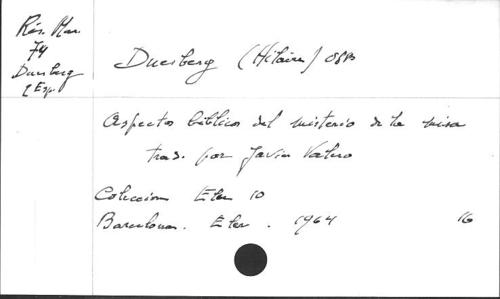 Rés. Mar.
74
Duesberg
1 Esp.
Duesberg (Hilaire) OSB
Aspectos bíblicos del misterio de la misa
trad. por Javier Valero
Coleccion Eler 10
Barcelona. Eler. 1964 16